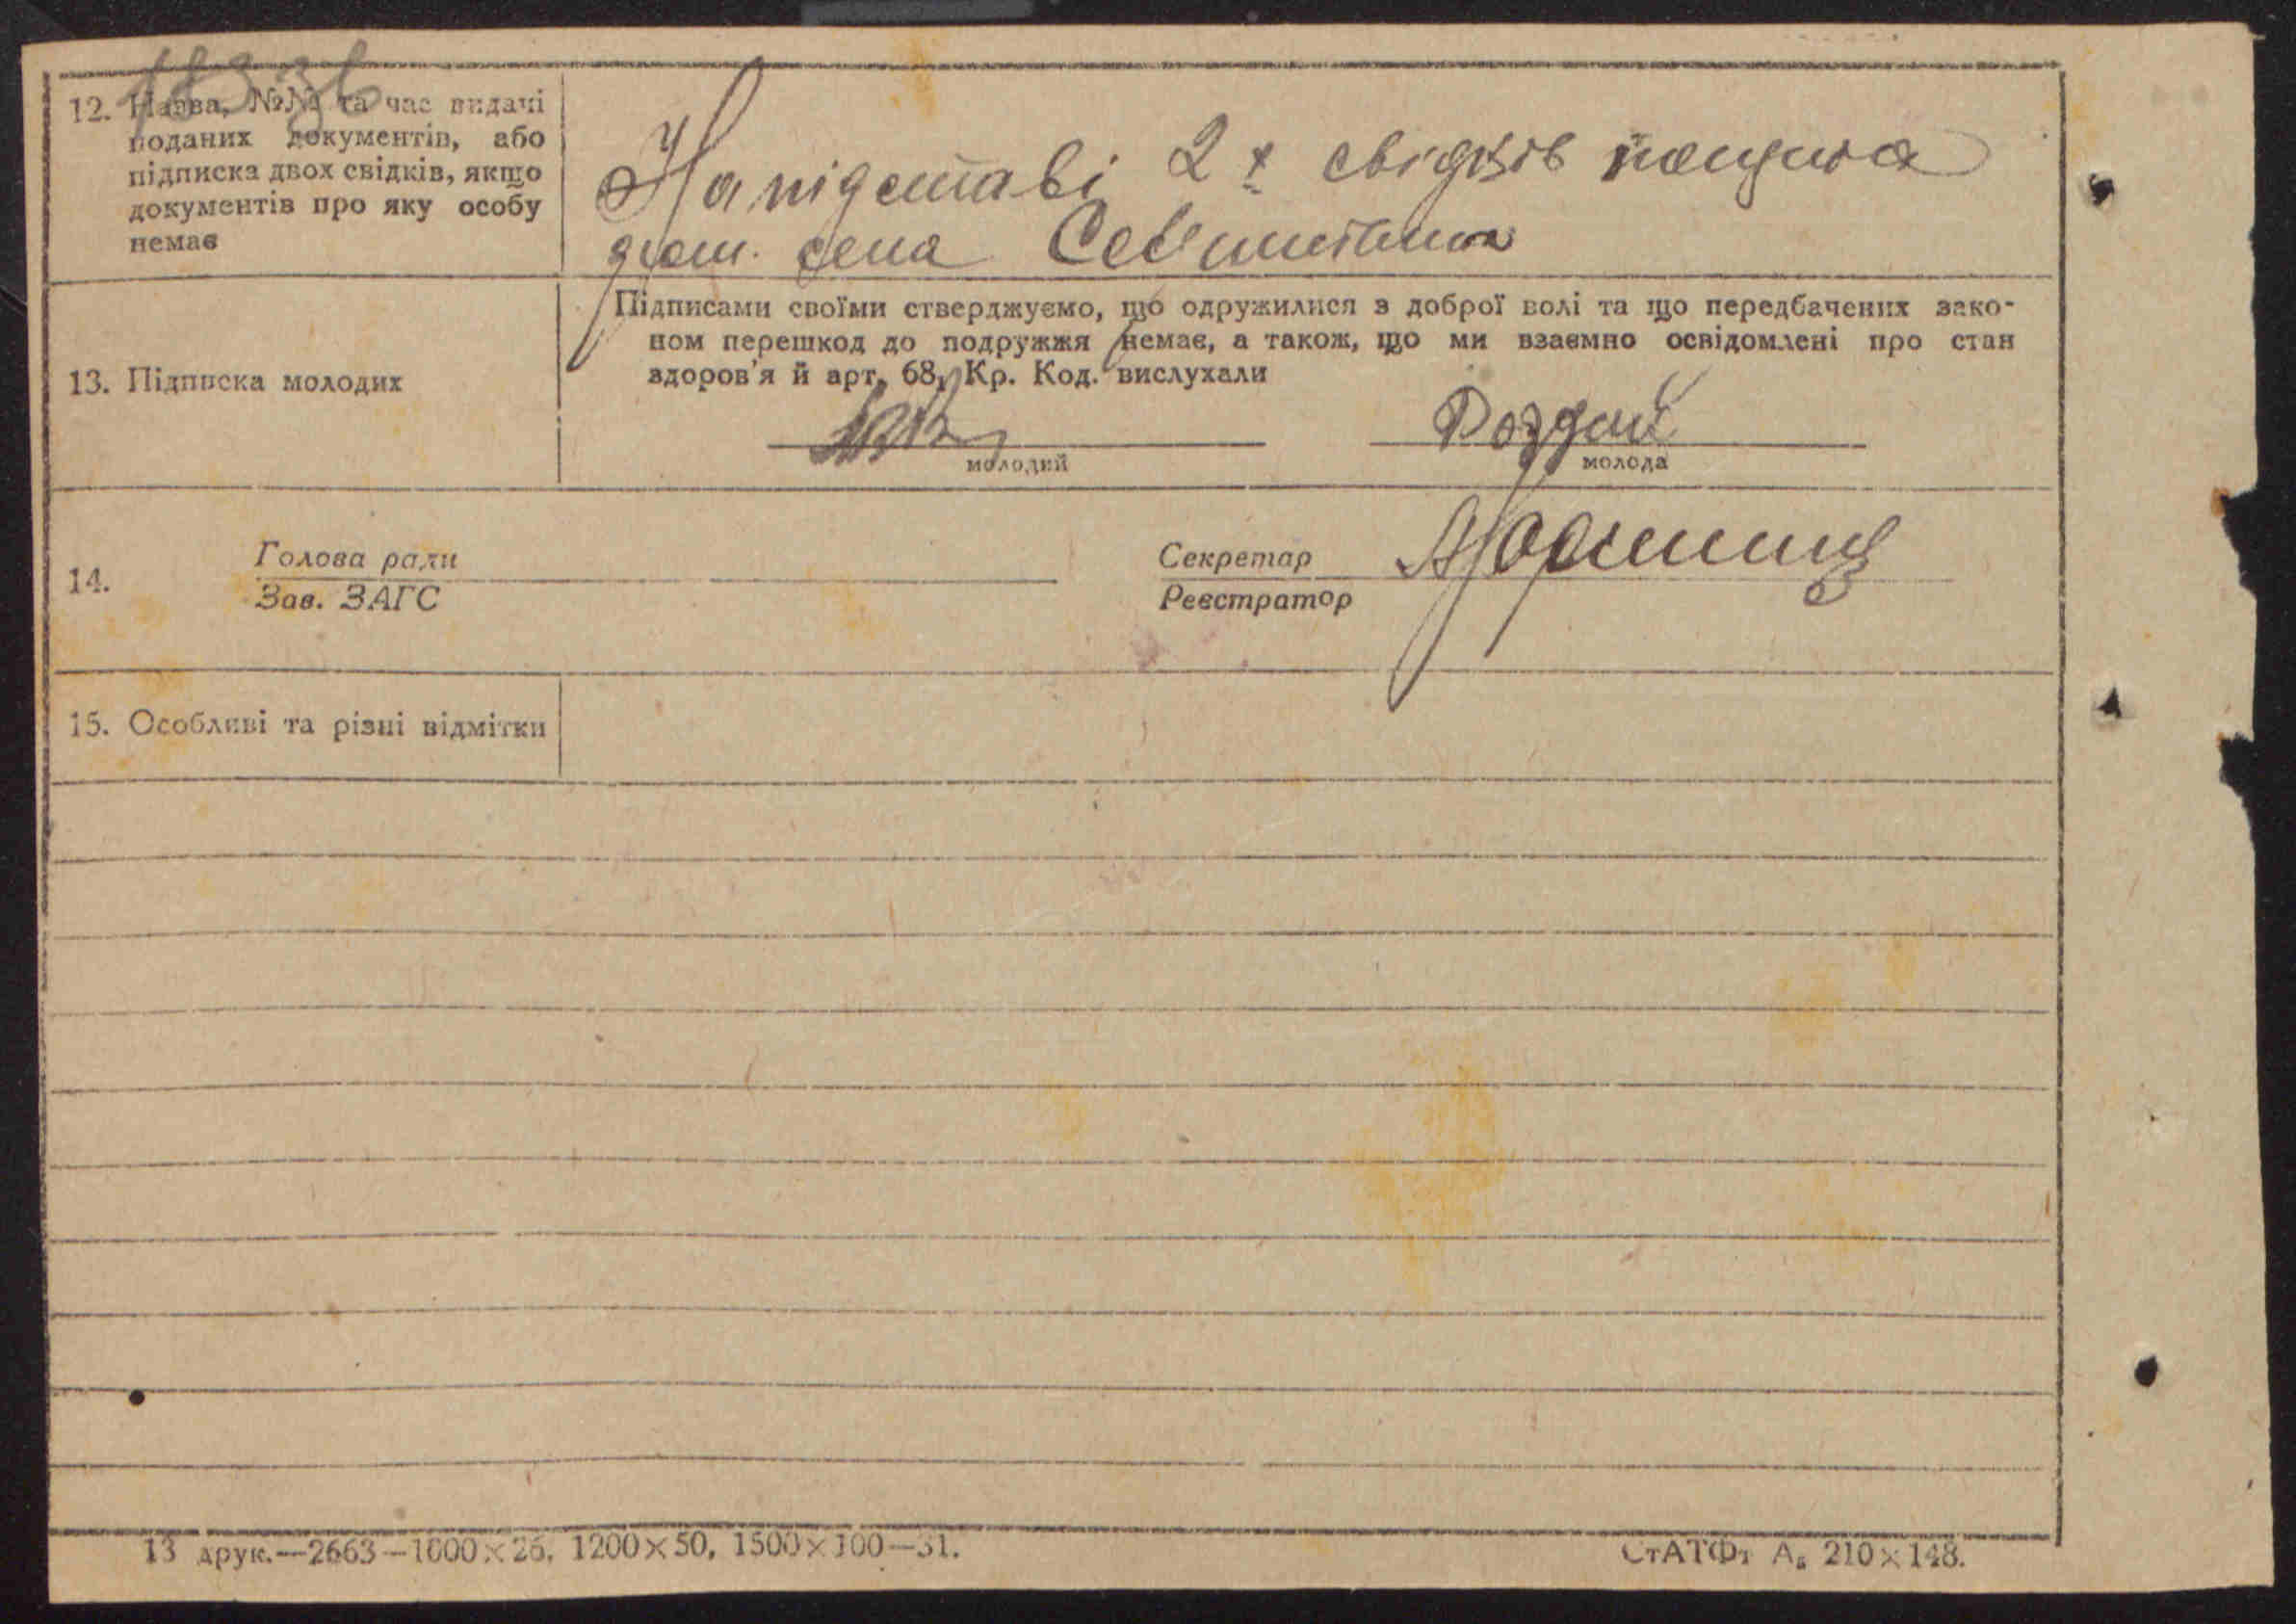 12. Назва, №№ та час видачі
поданих документів, або
підписка двох свідків, якщо
документів про яку особу
немає
На підставі 2х свідків
села
13. Підписка молодих
Підписами своїми стверджуємо, що одружилися з доброї волі та що передбачених зако-
ном перешкод до подружжя немає, а також, що ми взаємно освідомлені про стан
здоров'я й арт. 68, Кр. Код. вислухали
молодий
молода
14.
Голова ради
Зав. ЗАГС
Секретар
Реєстратор
15. Особливі та різні відмітки
13 друк.—2663—1000×26, 1200×50, 1500×100—31.
210×148.